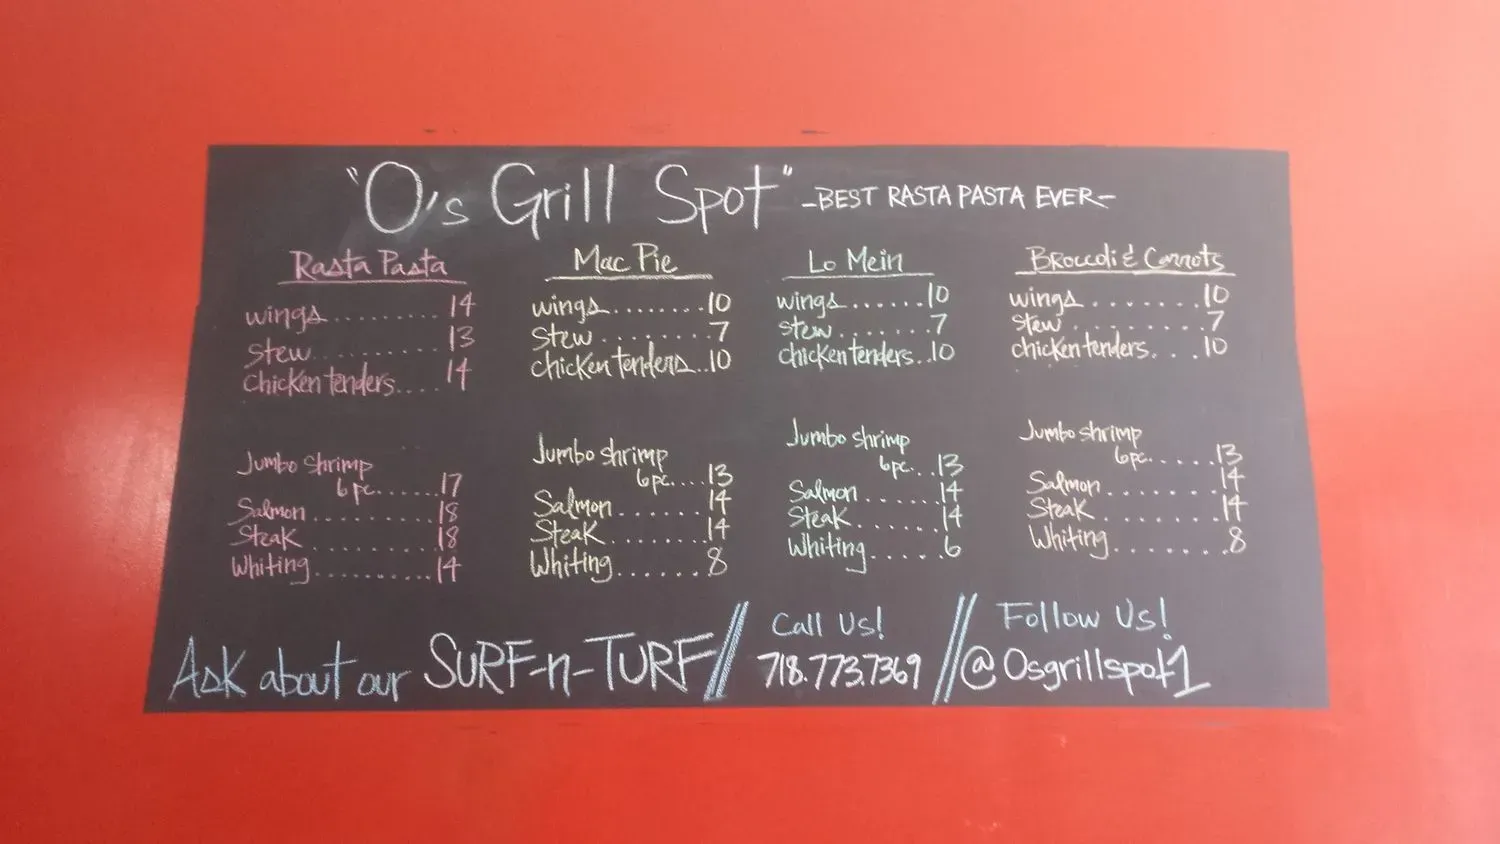 "O's Grill Spot" -BEST RASTA PASTA EVER-
Rasta Pasta
wings.........14
stew..........13
chicken tenders....14
Jumbo shrimp
6 pc......17
Salmon..........18
Steak..........18
Whiting..........14
Mac Pie
wings........10
Stew........7
chicken tenders..10
Jumbo shrimp
6pc....13
Salmon......14
Steak.......14
Whiting......8
Lo Mein
wings......10
stew.......7
chicken tenders..10
Jumbo shrimp
6pc...13
Salmon......14
Steak......14
Whiting.....6
Broccoli & Carrots
wings........10
Stew........7
chicken tenders....10
Jumbo shrimp
6pc......13
Salmon.......14
Steak.......14
Whiting.......8
Ask about our SURF-n-TURF//
Call Us!
718.773.7369
//
Follow Us!
@Osgrillspot1